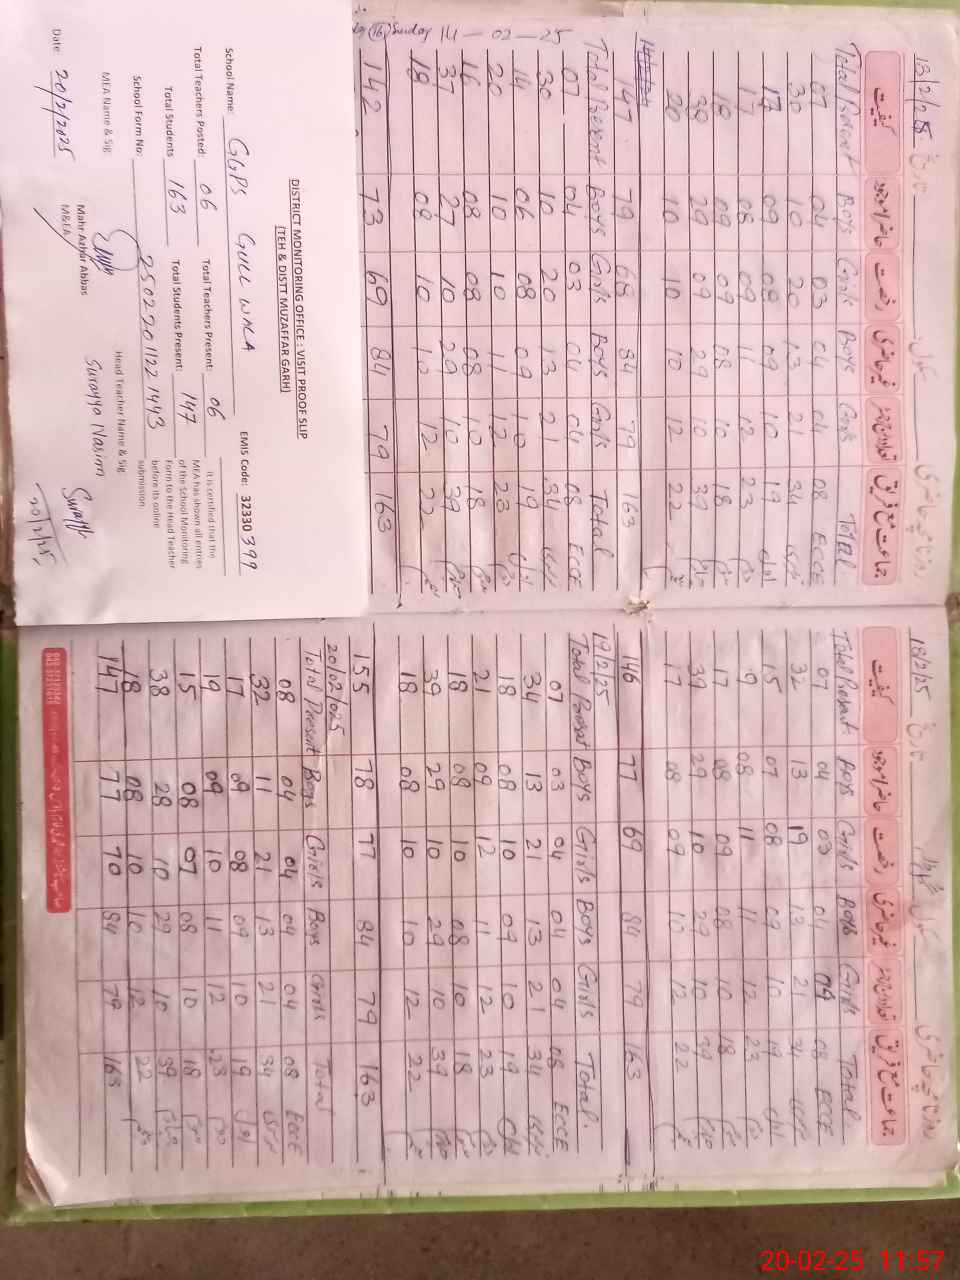 13/2/25 تاریخ
کیفیت حاضر امروز رخصت غیر حاضری جماعت مع فریق
Total Present Boys Girls Boys Girls Total
07 04 03 04 04 08 ECCE
30 10 20 13 21 34
17 09 08 09 10 19 اول
17 08 09 11 12 23 دوم
18 09 09 08 10 18 سوم
38 29 09 29 10 39
20 10 10 10 12 22
147 79 68 84 79 163
Sunday 14-02-25
Total Present Boys Girls Boys Girls Total
07 04 03 04 04 08 ECCE
30 10 20 13 21 34
14 06 08 09 10 19 اول
20 10 10 11 12 23 دوم
16 08 08 08 10 18 سوم
37 27 10 29 10 39
18 08 10 10 12 22
142 73 69 84 79 163
DISTRICT MONITORING OFFICE : VISIT PROOF SLIP
(TEH & DISTT MUZAFFAR GARH)
School Name: GGPS GULL WALA EMIS Code: 32330399
Total Teachers Posted: 06 Total Teachers Present: 06
Total Students 163 Total Students Present: 147
School Form No: 25022011221443
It is certified that the
MEA has shown all entries
of the School Monitoring
Form to the Head Teacher
before its online
submission.
MEA Name & Sig Mahr Azhar Abbas
M&EA
Head Teacher Name & Sig Surayya Nasim
Date: 20/2/2025
20/2/25
18/2/25 تاریخ
کیفیت حاضر امروز رخصت غیر حاضری جماعت مع فریق
Total Present Boys Girls Boys Girls Total
07 04 03 04 04 08 ECCE
32 13 19 13 21 34
15 07 08 09 10 19 اول
19 08 11 11 12 23 دوم
17 08 09 08 10 18 سوم
39 29 10 29 10 39
17 08 09 10 12 22
146 77 69 84 79 163
19/2/25
Total Present Boys Girls Boys Girls Total
07 03 04 04 04 08 ECCE
34 13 21 13 21 34
18 08 10 09 10 19 اول
21 09 12 11 12 23 دوم
18 08 10 08 10 18 سوم
39 29 10 29 10 39
18 08 10 10 12 22
155 78 77 84 79 163
20/02/025
Total Present Boys Girls Boys Girls Total
08 04 04 04 04 08 ECCE
32 11 21 13 21 34
17 09 08 09 10 19 اول
19 09 10 11 12 23 دوم
15 08 07 08 10 18 سوم
38 28 10 29 10 39
18 08 10 10 12 22
147 77 70 84 79 163
20-02-25 11:57